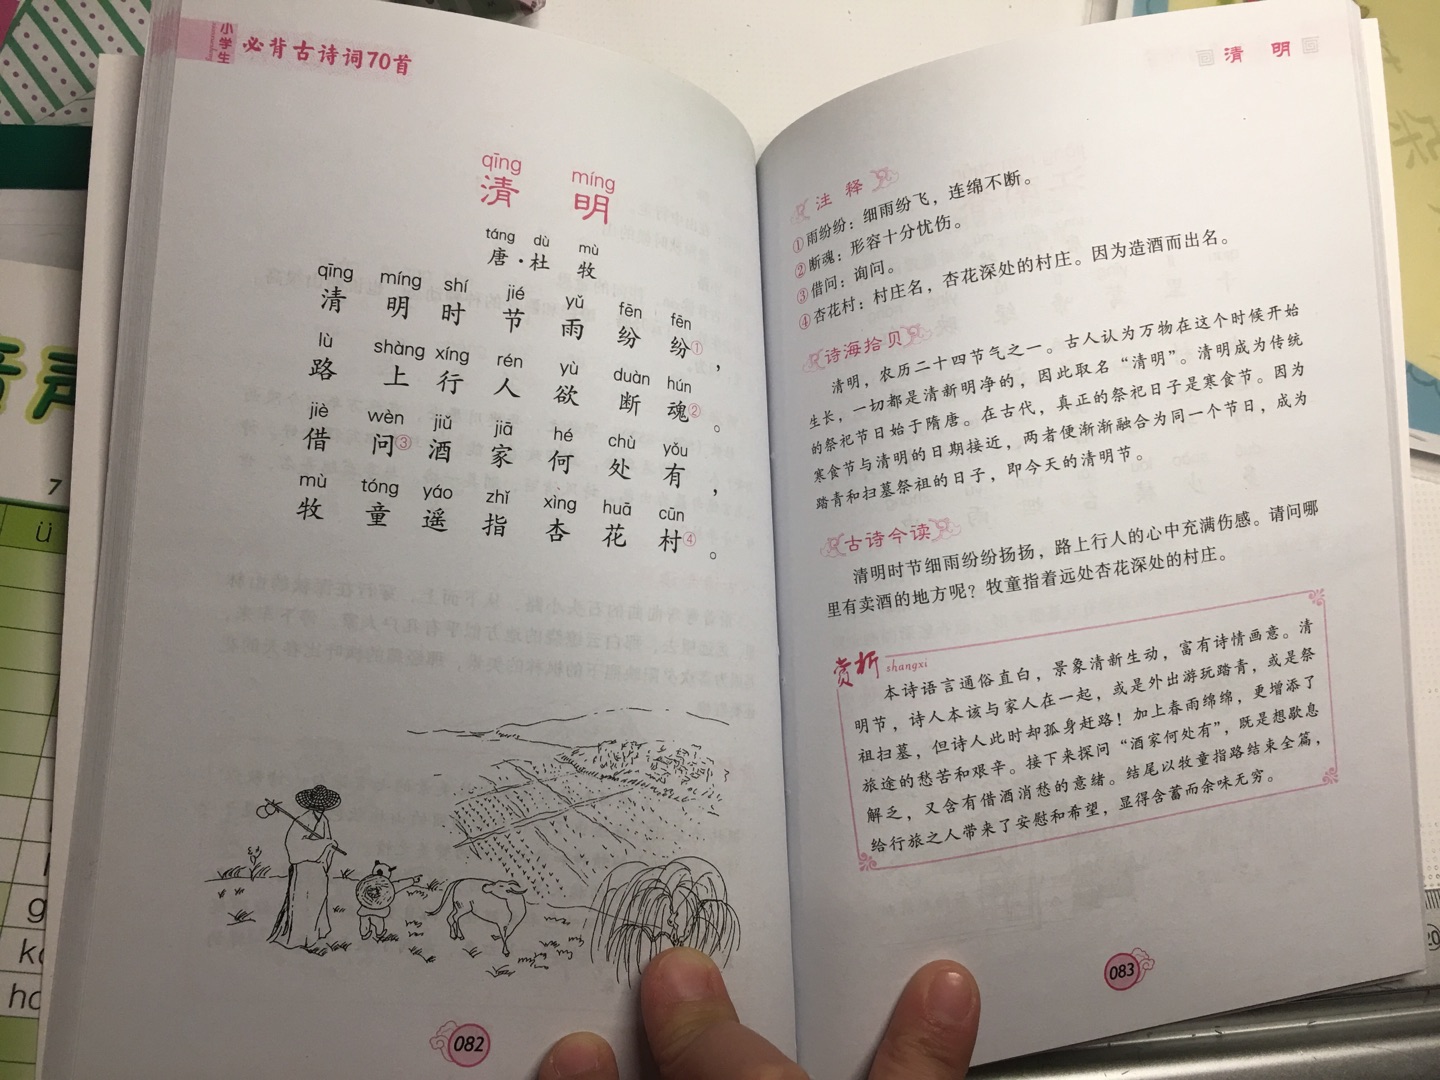 小学生
必背古诗词70首
qīng míng
清 明
táng dù mù
唐·杜 牧
qīng míng shí jié yǔ fēn fēn
清 明 时 节 雨 纷 纷①，
lù shàng xíng rén yù duàn hún
路 上 行 人 欲 断 魂②。
jiè wèn jiǔ jiā hé chù yǒu
借 问③ 酒 家 何 处 有，
mù tóng yáo zhǐ xìng huā cūn
牧 童 遥 指 杏 花 村④。
082
清 明
注 释
①雨纷纷：细雨纷飞，连绵不断。
②断魂：形容十分忧伤。
③借问：询问。
④杏花村：村庄名，杏花深处的村庄。因为造酒而出名。
诗海拾贝
清明，农历二十四节气之一。古人认为万物在这个时候开始
生长，一切都是清新明净的，因此取名“清明”。清明成为传统
的祭祀节日始于隋唐。在古代，真正的祭祀日子是寒食节。因为
寒食节与清明的日期接近，两者便渐渐融合为同一个节日，成为
踏青和扫墓祭祖的日子，即今天的清明节。
古诗今读
清明时节细雨纷纷扬扬，路上行人的心中充满伤感。请问哪
里有卖酒的地方呢？牧童指着远处杏花深处的村庄。
赏析 shangxi
本诗语言通俗直白，景象清新生动，富有诗情画意。清
明节，诗人本该与家人在一起，或是外出游玩踏青，或是祭
祖扫墓，但诗人此时却孤身赶路！加上春雨绵绵，更增添了
旅途的愁苦和艰辛。接下来探问“酒家何处有”，既是想歇息
解乏，又含有借酒消愁的意绪。结尾以牧童指路结束全篇，
给行旅之人带来了安慰和希望，显得含蓄而余味无穷。
083
7
ü
g
20